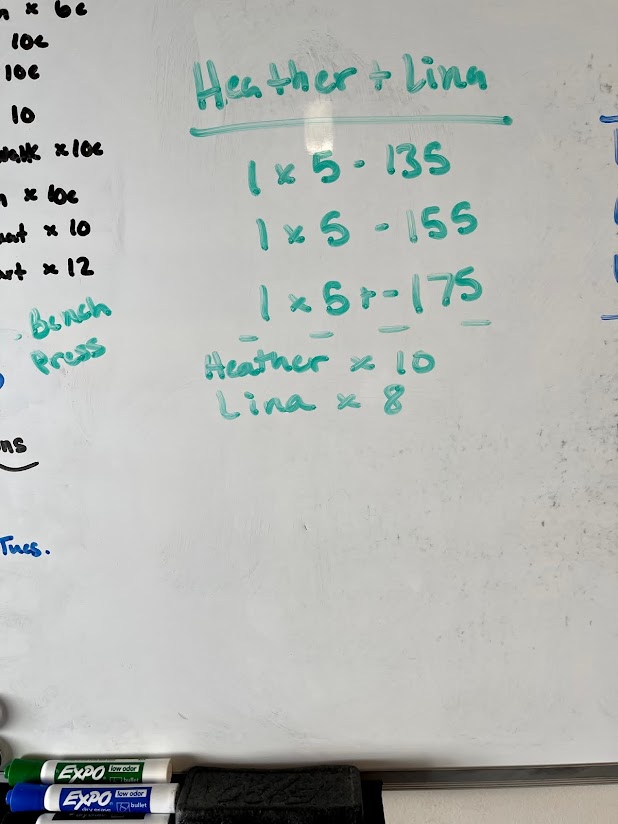 x 6e
10e
10e
10
walk x 10e
x 10e
x 10
x 12
Bench
Press
Tues.
Heather + Lina
1 x 5 - 135
1 x 5 - 155
1 x 5+ - 175
Heather x 10
Lina x 8
EXPO low odor
bullet
EXPO low odor
bullet